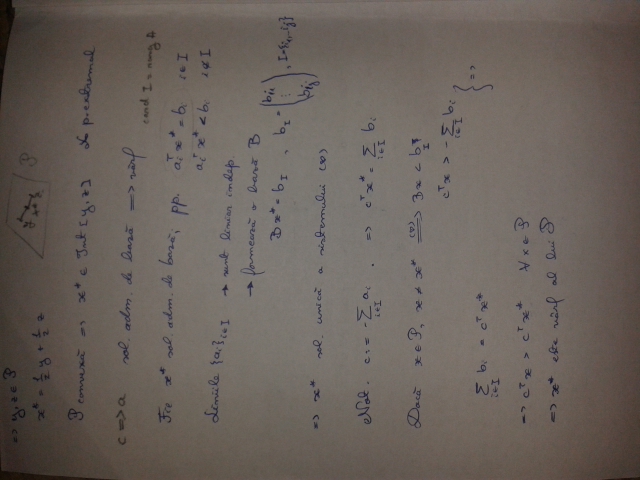 => y, z ∈ P
x* = ½ y + ½ z
P convexă => x* ∈ Int [y, z] ↯ p. extremal
P
c => a sol. adm. de bază => vârf
Fie x* sol. adm. de bază, pp. aᵢᵀx* = bᵢ i ∈ I
card I = rang A
aᵢᵀx* < bᵢ i ∉ I
Liniile {aᵢ}ᵢ∈I → sunt liniar indep.
→ formează o bază B
Bx* = b_I , b_I = (bᵢ₁ ⋮ bᵢⱼ), I = {i₁...iⱼ}
=> x* sol. unică a sistemului (*)
Not. c = -∑ᵢ∈I aᵢ . => cᵀx* = ∑ᵢ∈I bᵢ
Dacă x ∈ P, x ≠ x* =(*)=> Bx < b_I
cᵀx > -∑ᵢ∈I bᵢ } =>
∑ᵢ∈I bᵢ = cᵀx*
=> cᵀx > cᵀx* ∀ x ∈ P
=> x* este vârf al lui P